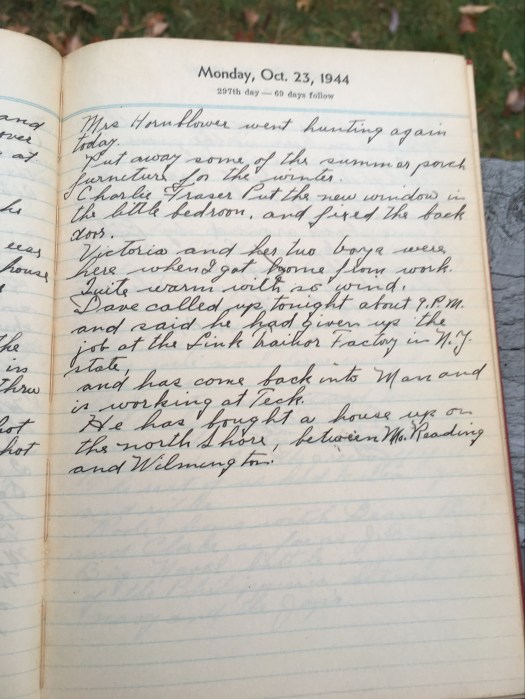 and
over
at
he
eeas
house
the
in
thru
hot
hot
Monday, Oct. 23, 1944
297th day — 69 days follow
Mrs Hornblower went hunting again
today.
Put away some of the summer porch
furneture for the winter.
Charlie Fraser Put the new window in
the little bedroon, and fixed the back
door.
Victoria and her two boys were
here when I got home from work.
Quite warm with so wind.
Dave called up tonight about 9. P.M.
and said he had given up the
job at the Link Factory in N.Y.
state,
and has come back into Mass and
is working at Teck.
He has bought a house up on
the north Shore, between No. Reading
and Wilmington.